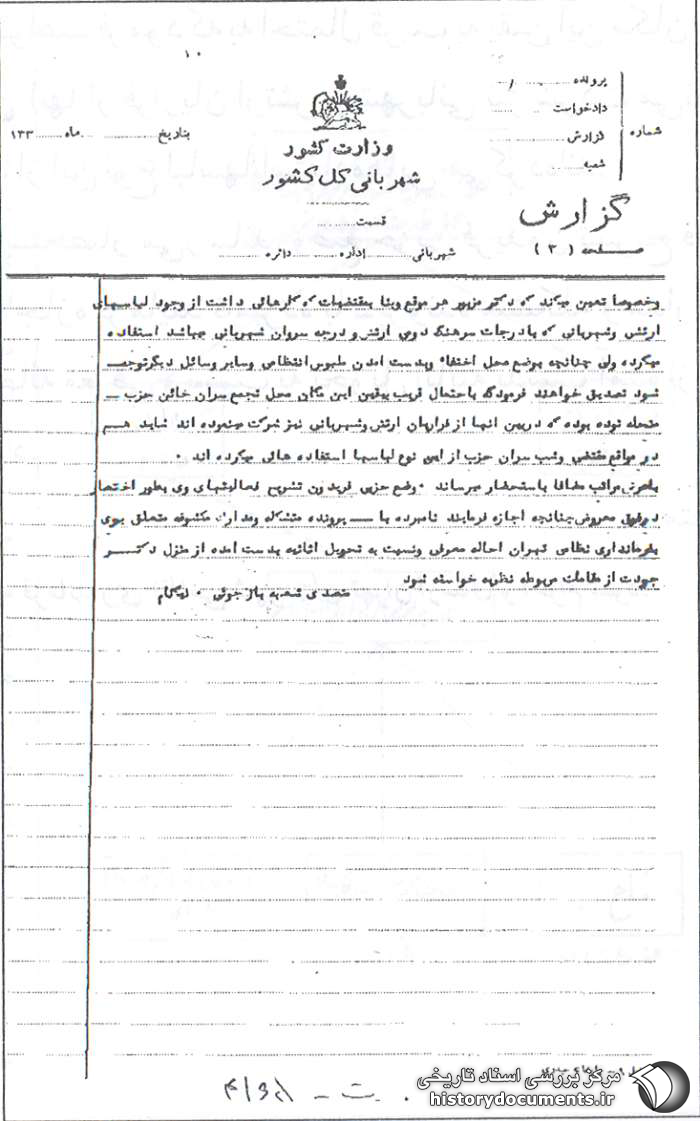 ۱۰
پرونده
دادخواست
شماره
گزارش
شعبه
بتاریخ ماه ۱۳۳
وزارت کشور
شهربانی کل کشور
قسمت
شهربانی اداره دائره
گزارش
صفحه (۳)
وخصوصا تعیین میکند که دکتر مزبور هر موقع وبنا بمقتضیات که کارهائی داشت از وجود لباسهای
ارتش وشهربانی که با درجات سرهنگ دومی ارتش و درجه سروان شهربانی میباشد استفاده
میکرده ولی چنانچه بوضع محل اختفاء وبدست امدن ملبوس انتظامی وسایر وسائل دیگر توجه
شود تصدیق خواهند فرمود که باحتمال قریب بیقین این مکان محل تجمع سران خائن حزب
منحله توده بوده که دربین انها از فراریان ارتش وشهربانی نیز شرکت مینموده اند شاید هم
در مواقع مقتضی وشب سران حزب از این نوع لباسها استفاده هائی میکرده اند .
بامعرض مراتب مضافا باستحضار میرساند . وضع حزبی فریدون تشریح فعالیتهای وی بطور اختصار
درفوق معروض چنانچه اجازه فرمایند نامبرده با پرونده متشکله ومدارک مکشوفه متعلق بوی
بفرمانداری نظامی تهران احاله معرفی ونسبت به تحویل اثاثیه بدست امده از منزل دکتر
جودت از مقامات مربوطه نظریه خواسته شود
متصدی شعبه بازجوئی .
مرکز بررسی اسناد تاریخی
historydocuments.ir